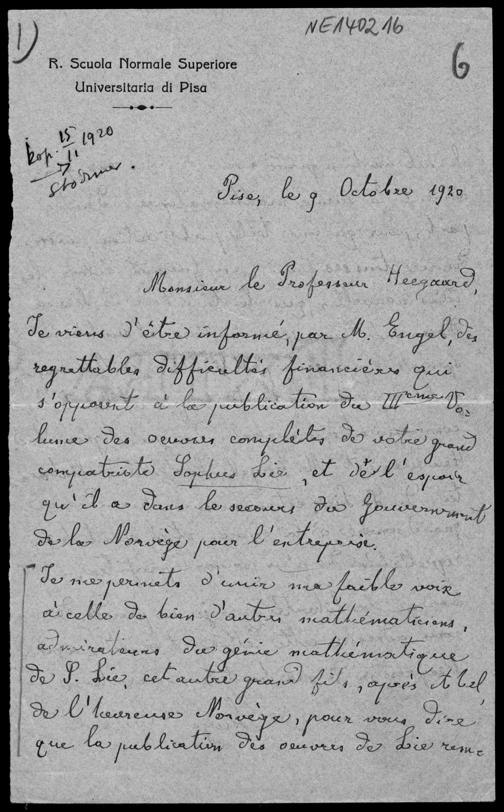 1)
NE140216
6
R. Scuola Normale Superiore
Universitaria di Pisa
kop. 15/11 1920
Størmer.
Pise, le 9 Octobre 1920
Monsieur le Professeur Heegaard,
Je viens d'être informé, par M. Engel, des
regrettables difficultés financières qui
s'opposent à la publication du IIIeme Vo=
lume des oeuvres complètes de votre grand
compatriote Sophus Lie, et de l'espoir
qu'il a dans le secours du Gouvernement
de la Norvège pour l'entreprise.
Je me permets d'unir ma faible voix
à celle de bien d'autres mathématiciens,
admirateurs du génie mathématique
de S. Lie cet autre grand fils, après Abel,
de l'heureuse Norvège, pour vous dire
que la publication des oeuvres de Lie rem=